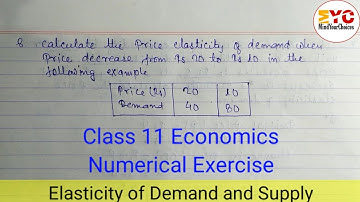 EYC
MindYourChoices
8 calculate the Price elasticity of demand when
Price decrease from Rs 20 to Rs 10 in the
following example
Price (Rs) 20 10
Demand 40 80
Class 11 Economics
Numerical Exercise
Elasticity of Demand and Supply